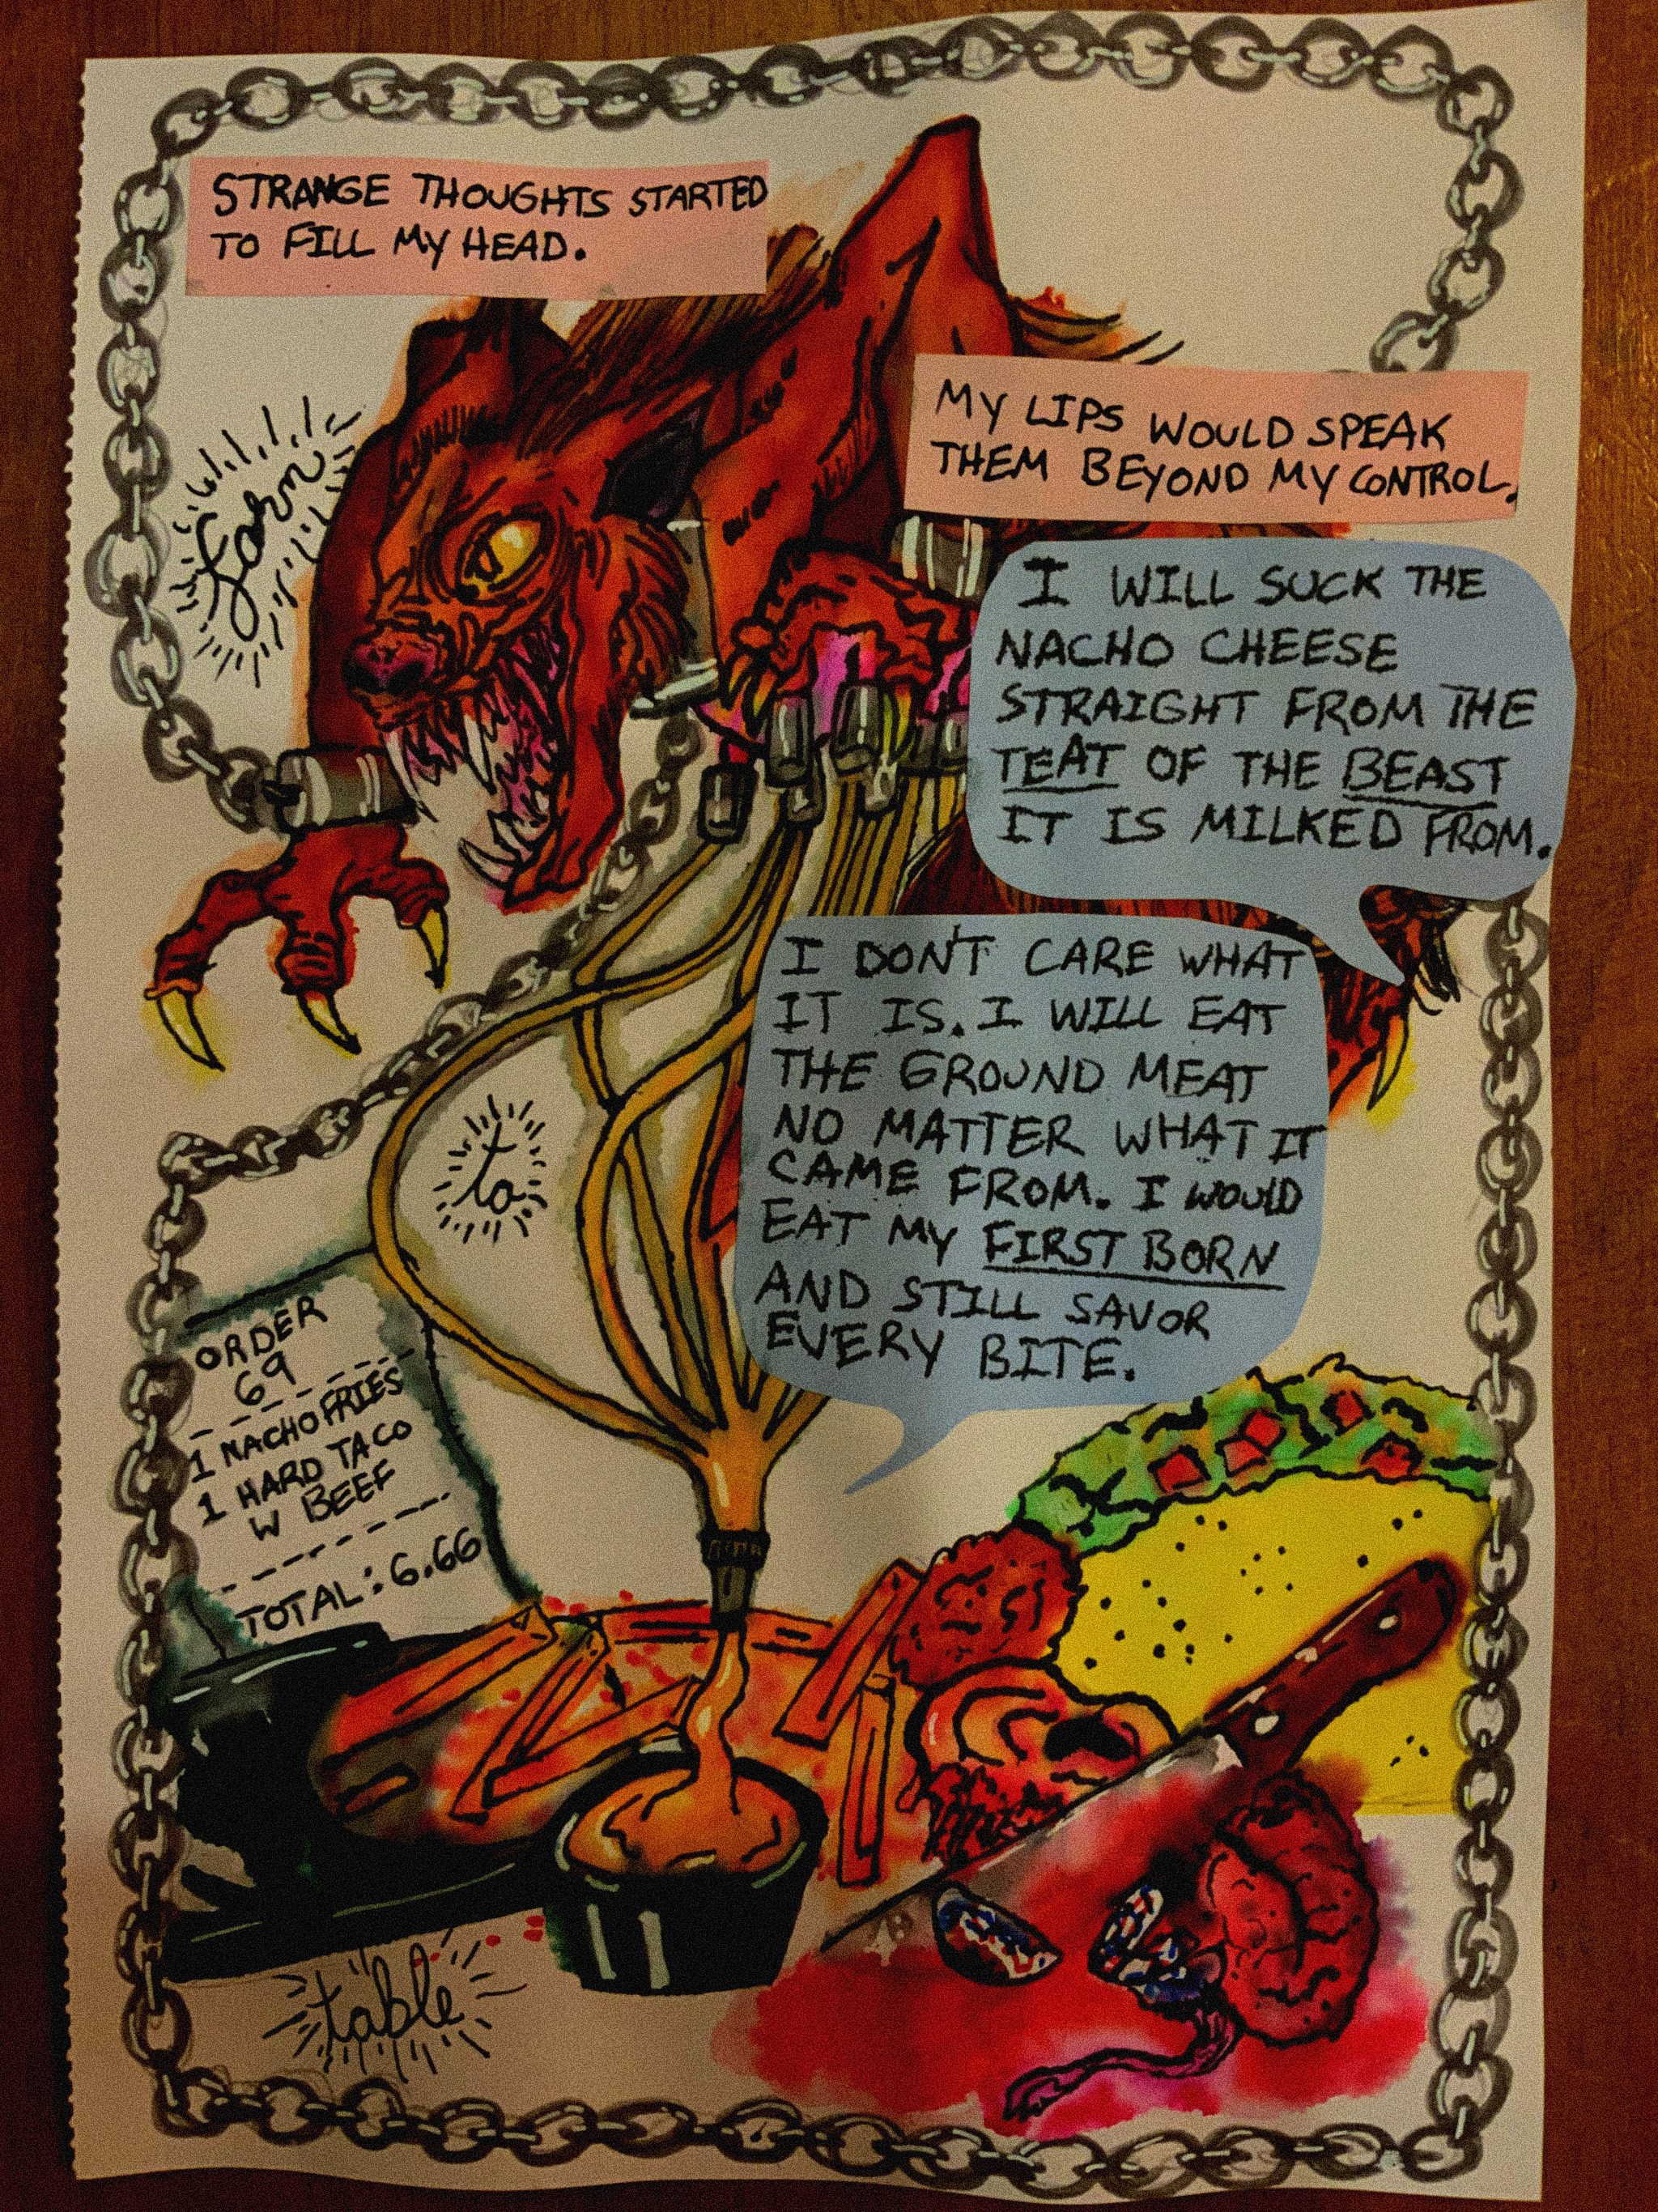 STRANGE THOUGHTS STARTED
TO FILL MY HEAD.
MY LIPS WOULD SPEAK
THEM BEYOND MY CONTROL.
farm
I WILL SUCK THE
NACHO CHEESE
STRAIGHT FROM THE
TEAT OF THE BEAST
IT IS MILKED FROM.
I DON'T CARE WHAT
IT IS. I WILL EAT
THE GROUND MEAT
NO MATTER WHAT IT
CAME FROM. I WOULD
EAT MY FIRST BORN
AND STILL SAVOR
EVERY BITE.
to
ORDER
69
1 NACHO FRIES
1 HARD TACO
W BEEF
TOTAL: 6.66
table